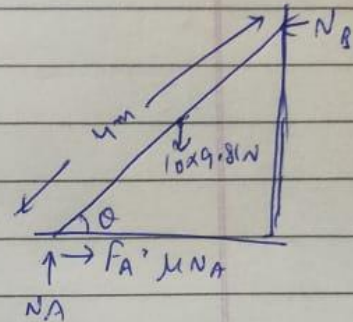 N_B
4m
10×9.81N
θ
→ F_A = μN_A
N_A